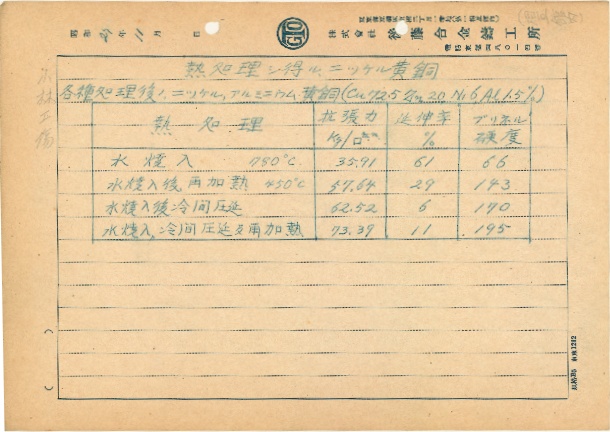 昭和 21年 11月 日
GIO
株式會社 後藤合金鑄工所
熱処理シ得ル、ニッケル黄銅
各種処理後ノ、ニッケル、アルミニウム、黄銅(Cu 72.5 Zn 20 Ni 6 Al 1.5%)
熱処理 拡張力 kg/□mm 延伸率 % ブリネル硬度
水焼入 780°C. 35.91 61 66
水焼入後、再加熱 450°C 57.64 29 143
水焼入後冷间圧延 62.52 6 170
水焼入、冷间圧延及再加熱 73.39 11 195